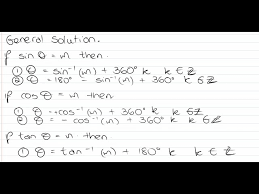 General Solution.
If sin θ = n then
① θ = sin⁻¹(n) + 360° k k ∈ Z
② θ = 180° - sin⁻¹(n) + 360° k k ∈ Z
If cos θ = n then
① θ = cos⁻¹(n) + 360° k k ∈ Z
② θ = - cos⁻¹(n) + 360° k k ∈ Z
If tan θ = n then
① θ = tan⁻¹(n) + 180° k k ∈ Z